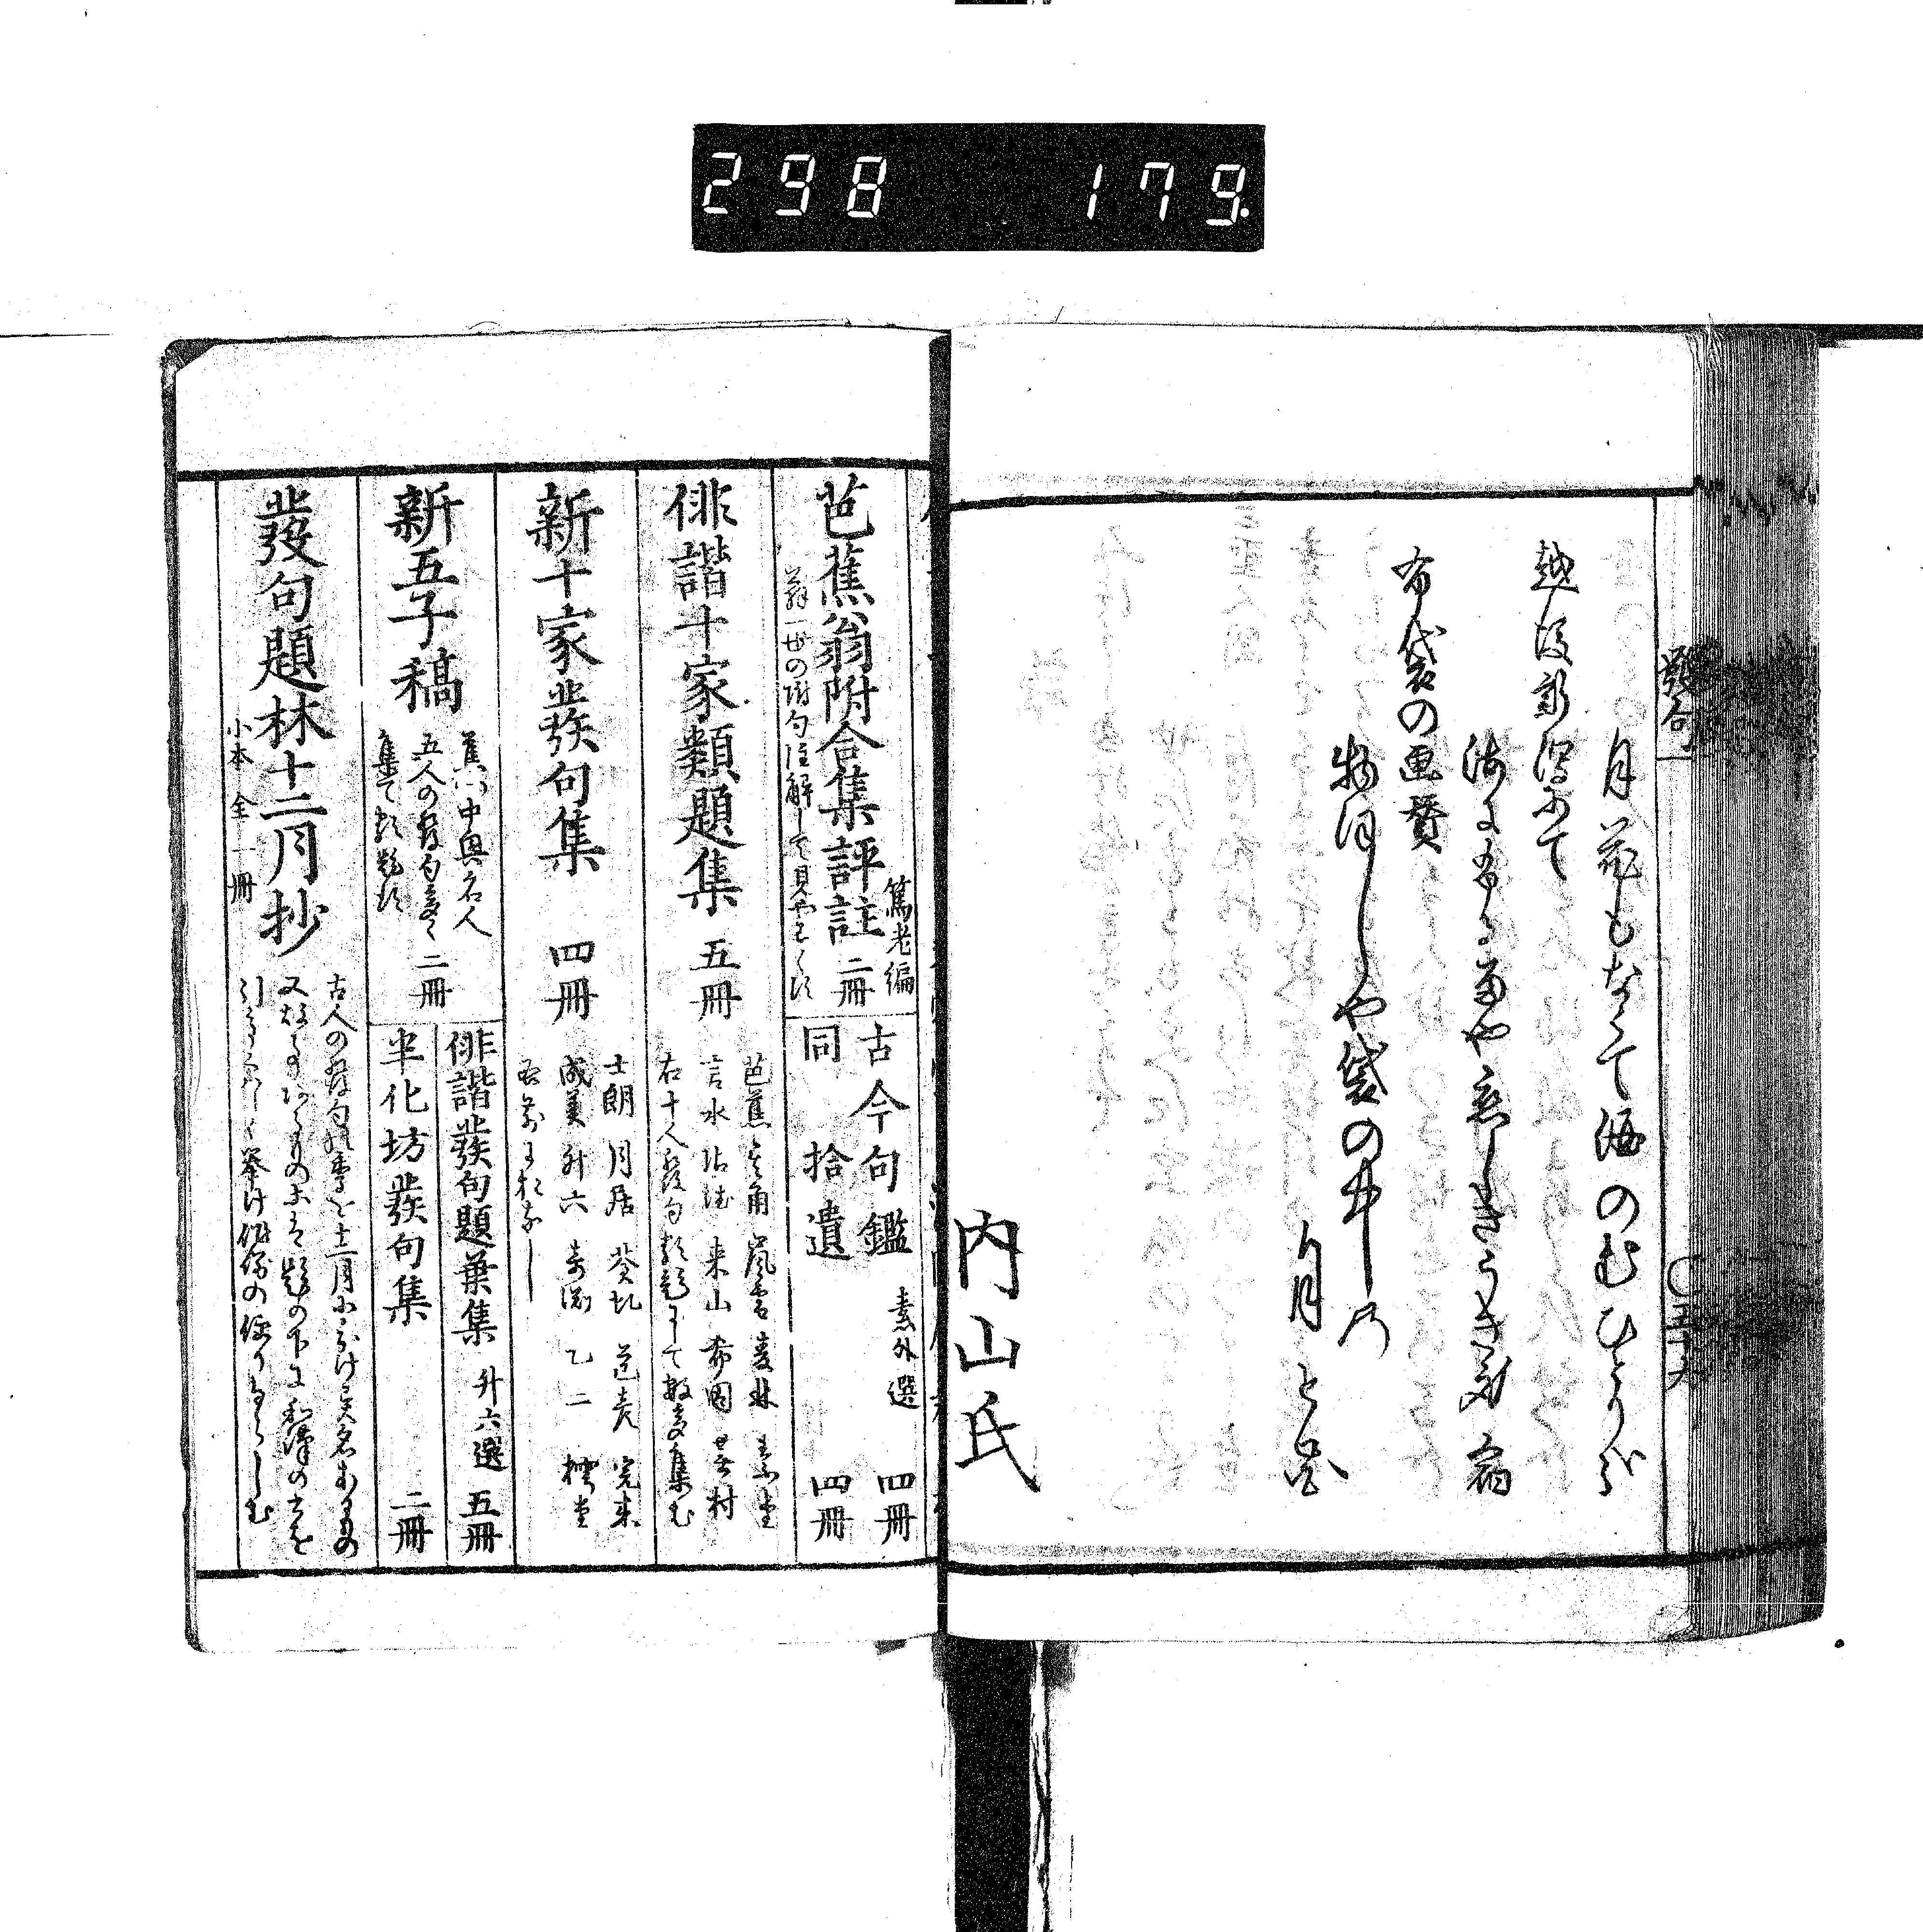 298 179
發句
五十六
月花もなくて酒のむひとり哉
越後新潟にて
海に降る雨や恋しきうき身宿
布袋の画賛
物ほしや袋の中の
月と花
内山氏
芭蕉翁附合集評註
篤老編
二冊
翁一世の附句注解して見やすくす
古今句鑑
素外選
四冊
同拾遺
四冊
俳諧十家類題集
五冊
芭蕉 其角 嵐雪 麦林 素堂
言水 沾徳 来山 希因 蕪村
右十人發句類題にして数多集む
新十家發句集
四冊
士朗 月居 葵亢 道彦 完来
成美 升六 奇淵 乙二 樗堂
新五子稿
蕉門中興名人
五人の發句多く
集て類題す
二冊
俳諧發句題葉集
升六選
五冊
半化坊發句集
二冊
發句題林十二月抄
小本 全一冊
古人の發句四季を十二月に分け